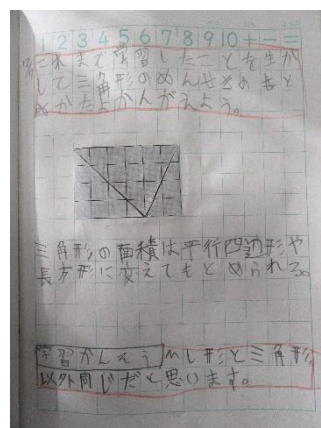 1 2 3 4 5 6 7 8 9 10 + - =
これまで学習したことを生か
して三角形のめんせきのもと
めかたをかんがえよう。
三角形の面積は平行四辺形や
長方形に変えてもとめられる。
学習かんそう へい形と三角形
以外同じだと思います。